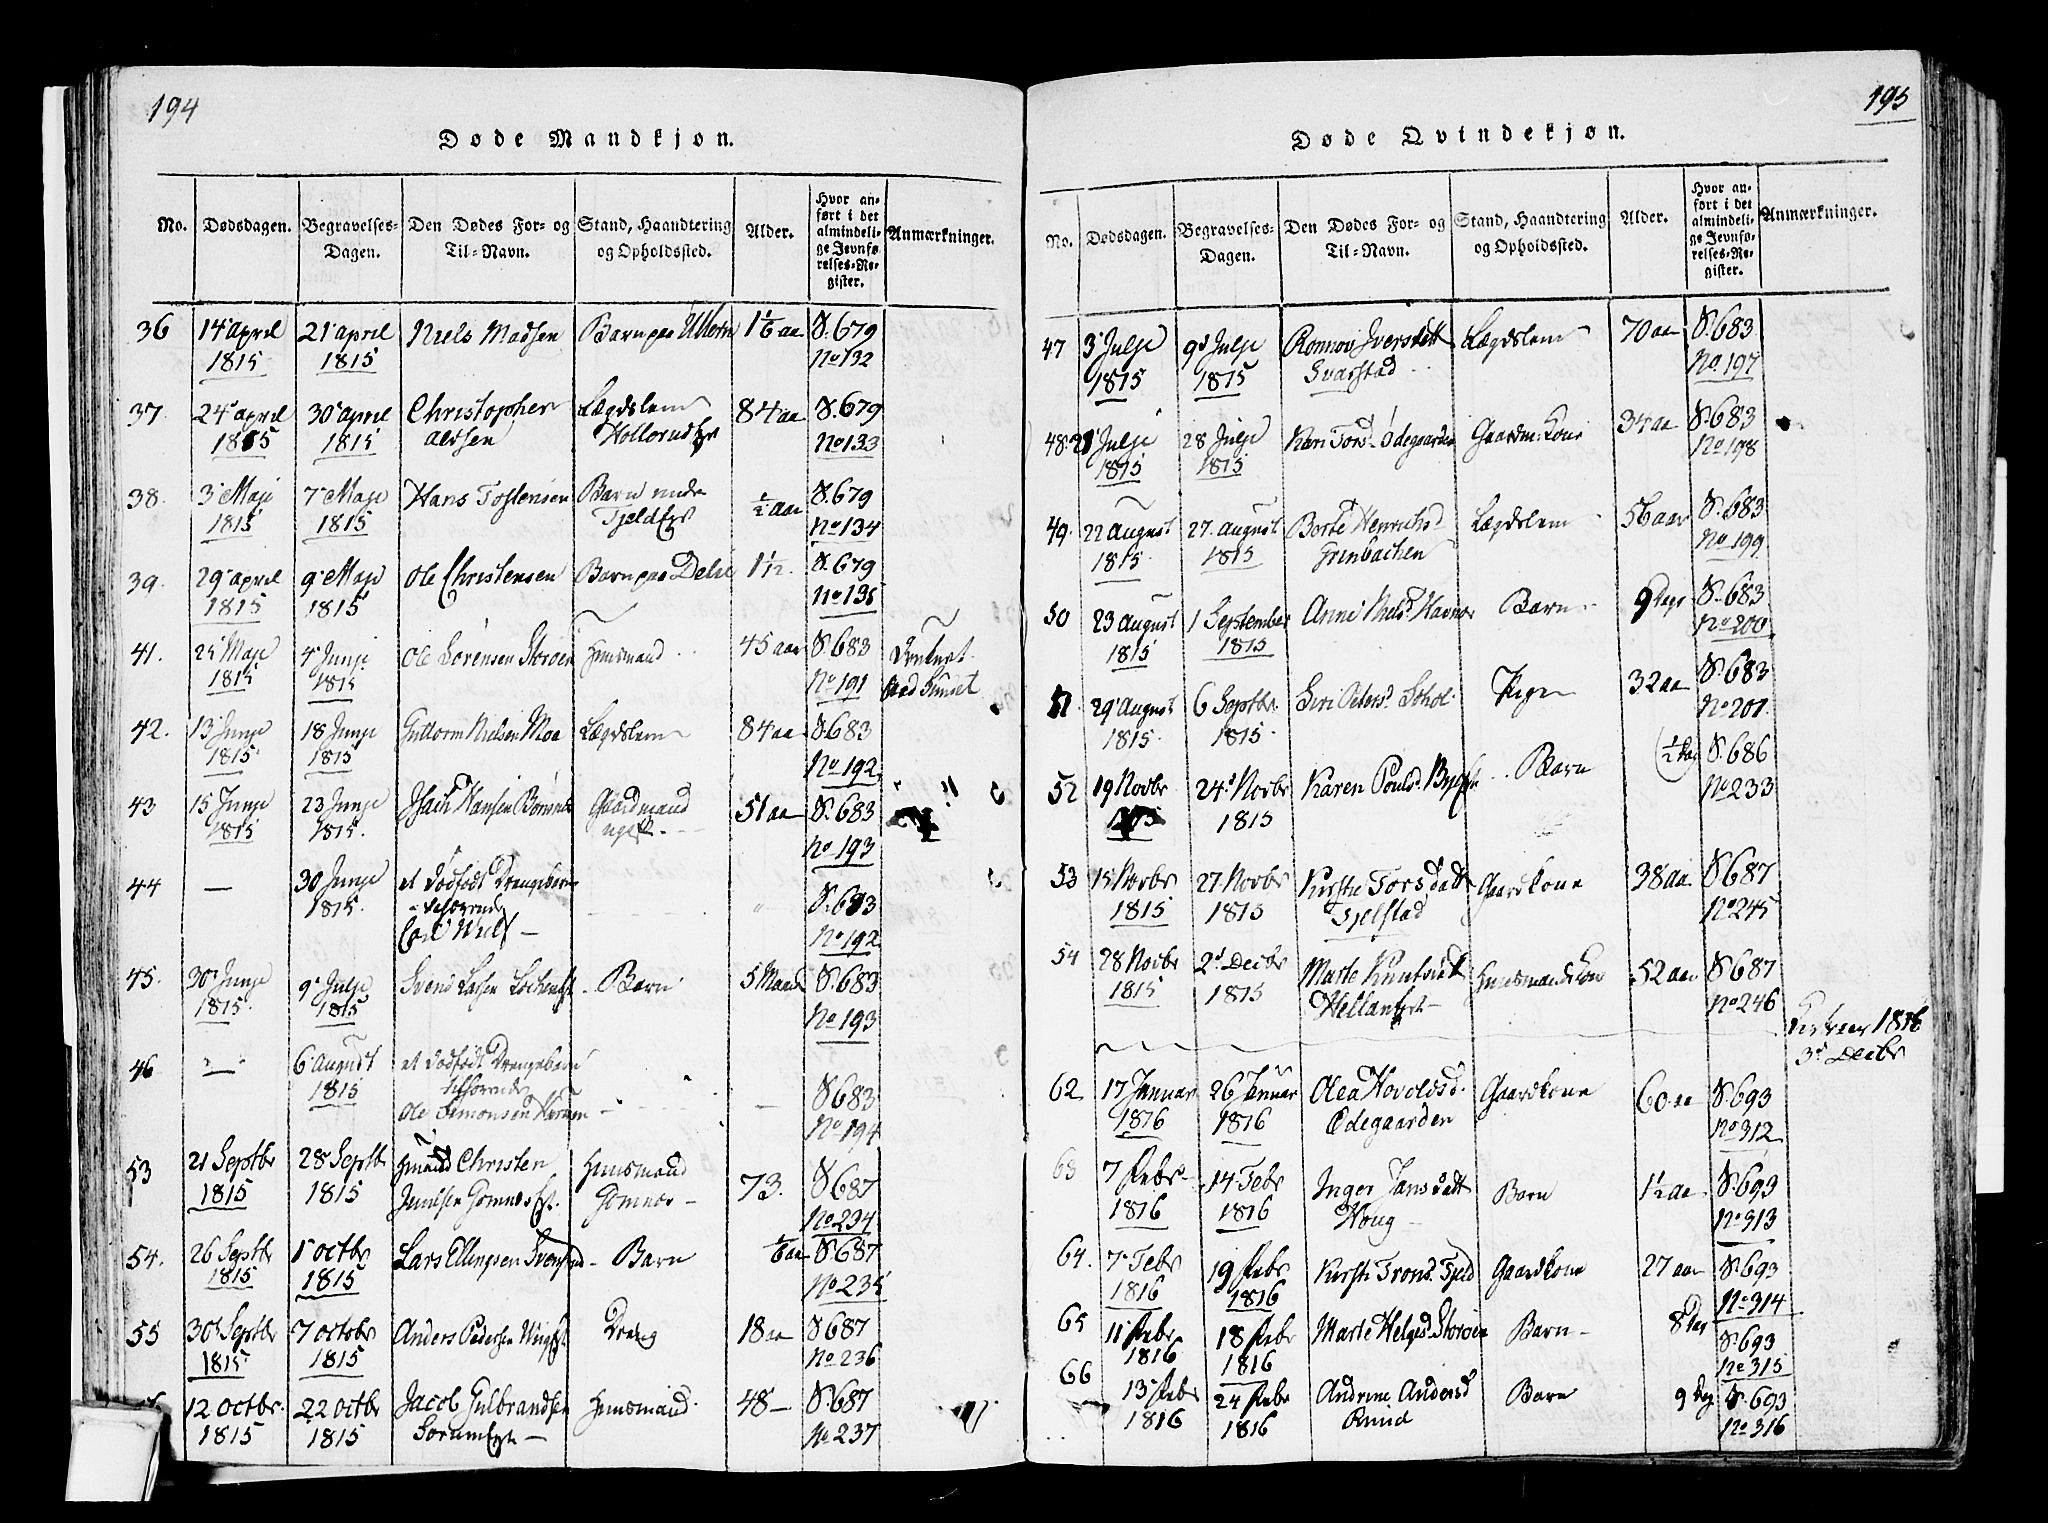 194
Døde Mandkjøn.
No.
Dødsdagen.
Begravelses-
Dagen.
Den Dødes For- og
Til-Navn.
Stand, Haandtering
og Opholdssted.
Alder.
Hvor an-
ført i det
almindeli-
ge Jevnfø-
relses-Re-
gister.
Anmærkninger.
36 14 april 21 april Niels Madsen Barn paa 1 1/6 aa S. 679
1815 1815 No 132
37. 24 april 30 april Christopher Lægdslem 84 aa S. 679
1815 1815 No 133
38. 3 Maji 7 Maji Hans Tostensen Barn 1/2 aar S. 679
1815 1815 No 134
39. 29 april 9 Maji Ole Christensen Barn paa 1 1/2. S. 679
1815 1815 No 135
41. Maji 4 Junji Ole Sörensen Storöen Huusmand 45 aar S. 683 Druknet
1815 1815 No 191 Sundet
42. 13 Junji 18 Junji Guttorm Nielsen Moe Lægdslem 84 aa S. 683
1815 1815 No 192
43 15 Junji 23 Junji Hansen Gaardmand 51 aa S. 683
1815 1815. No 193
44 — 30 Junji et dödfödt Drengebarn S. 683
1815. tilhörende
— No 192
45. 30 Junji 9 Julji Svend Barn 5 Maan S. 683
1815. 1815 No 193
46 6 August et dödfödt Drengebarn
1815 tilhörende — S 683
Ole Simonsen No 194
53 21 Septbr 28 Septbr Christen Huusmand 73. S 687
1815 1815 No 234
54. 26 Septbr 1 octbr Lars Ellingsen Barn 1/6 aa S. 687
1815 1815 No 235
55 30 Septbr 7 octobr Anders Pedersen Dreng 18 aa S 687
1815 1815 No 236
12 octbr. 22 octbr Jacob Gulbrandsen Huusmand 48 — S. 687
1815 1815 — No 237
195
Døde Qvindekjøn.
No.
Dødsdagen.
Begravelses-
Dagen.
Den Dødes For- og
Til-Navn.
Stand, Haandtering
og Opholdssted.
Alder.
Hvor an-
ført i det
almindeli-
ge Jevnfø-
relses-Re-
gister.
Anmærkninger.
47 3 Julji 9 Julji Ronnov Iversdatt Lægdslem 70 aa S. 683
1815 1815 Svarstad No. 197
48. 21 Julji 28 Julji Kari Torsd Ödegaarden Gaardm: Kone 34 aa S. 683
1815 1815 No 198
49. 22 August 27. August Lægdslem 56 aar S. 683
1815. 1815 No 199
50 23 August 1 September Anne Nielsd Barn 9 Dage S. 683
1815 1815 No 200
51. 29 August 6 Septbr. Siri Peders. Pige 32 aa S. 683
1815. 1815. No 201.
52 19 Novbr 24 Novbr Karen Pouls. Barn 1/2 Dag S. 686
1815 No 233
53 15 Novbr 27 Novbr Kirstie Torsdatt Gaardkone 38 aa S 687
1815 1815 Tjelstad No 245
54 28 Novbr 2 Decbr Marte Huusmands Kone 52 aa S 687
1815 1815 No 246
Kirkeaar 1816
3 Decbr
62 17 Januar 26 Januar Olea Hovoldsd. Gaardkone 60 aa S. 693
1816 1816 Ödegaarden No 312
63 7 Febr. 14 Febr Inger Jansdatt Barn 1 1/2 aa S. 693
1816 1816 Houg — No 313
64. 7 Febr 19 Febr Kirsti Trons. Gaardkone 27 aar S. 693
1816 1816 No 314
65 11 Febr 18 Febr Marte Helgesd Storöen Barn 8 Dag S. 693
1816 1816 No 315
66 13 Febr 24 Febr Andrine Andersd Barn 9 Dag S. 693
1816 1816 Ruud No 316